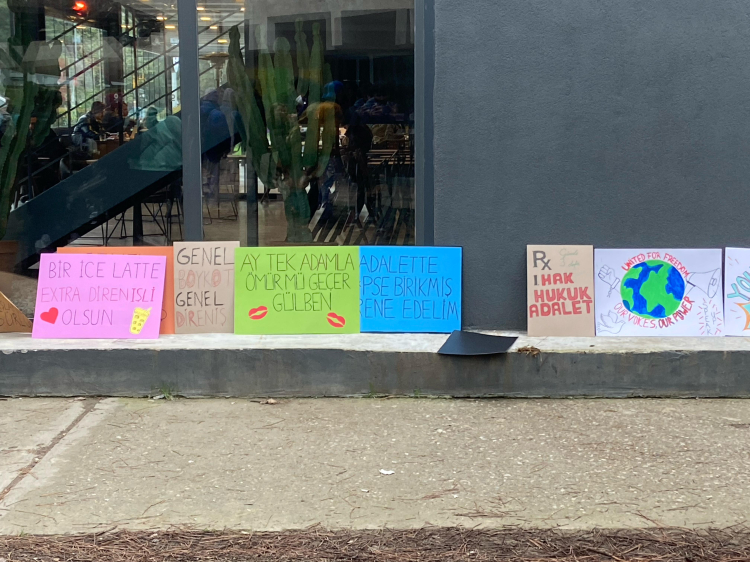 BİR ICE LATTE
EXTRA DİRENİŞLİ
OLSUN
GENEL
BOYKOT
GENEL
DİRENİŞ
AY TEK ADAMLA
ÖMÜR MÜ GEÇER
GÜLBEN
ADALETTE
EPSE BİRİKMİŞ
ENE EDELİM
Rx
1 HAK
HUKUK
ADALET
UNITED FOR FREEDOM
OUR VOICES, OUR POWER